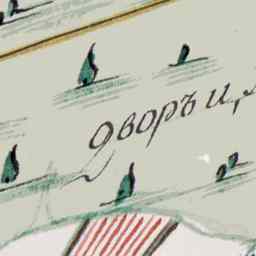 дворъ и,